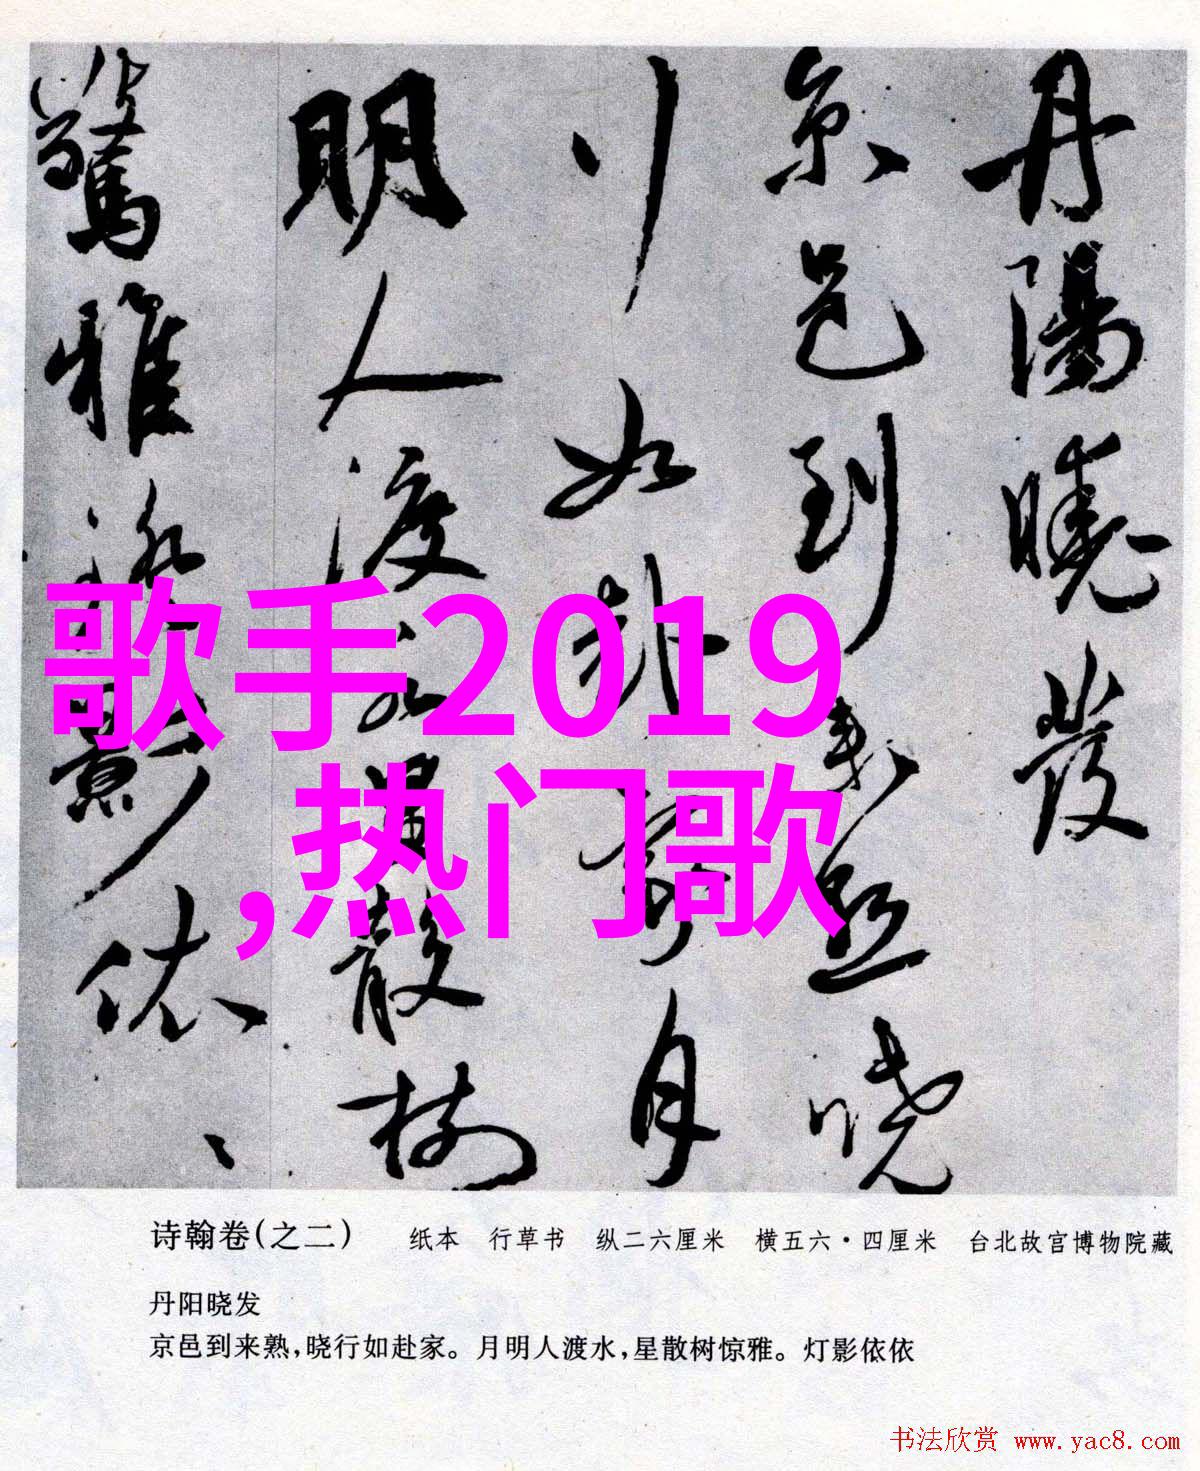 丹陽曉發
京邑到来熟曉
行如赴家月
明人渡水星散樹
驚雅燈影依、、
歌手2019
,热门歌
诗翰卷(之二) 纸本 行草书 纵二六厘米 横五六·四厘米 台北故宫博物院藏
丹阳晓发
京邑到来熟,晓行如赴家。月明人渡水,星散树惊雅。灯影依依
书法欣赏 www.yac8.com